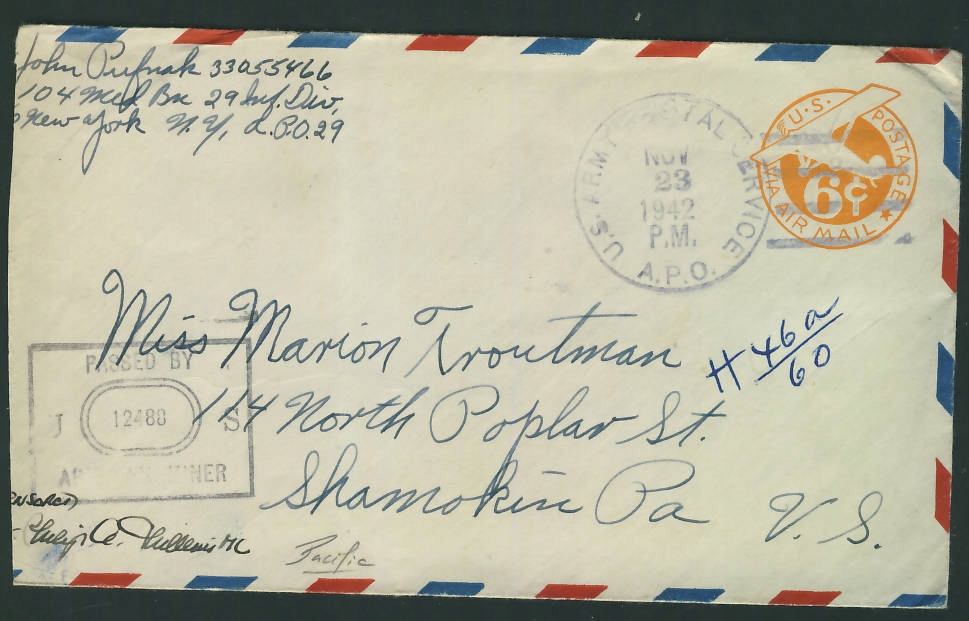 John Pufnak 33055466
104 Med Bn 29 Inf. Div,
New York N.Y, A.P.O. 29
U.S. ARMY POSTAL SERVICE
NOV
23
1942
P.M.
A.P.O.
U.S. POSTAGE
6¢
VIA AIR MAIL
Miss Marion Troutman
114 North Poplar St.
Shamokin Pa
U. S.
H 46a
60
PASSED BY
J 12488 S
Pacific